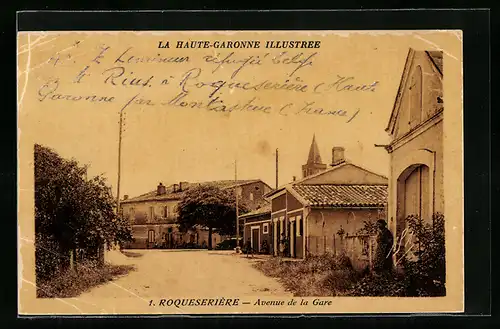 LA HAUTE-GARONNE ILLUSTREE
réfugié belge
de Rius à Roqueserière (Haute
Garonne par Montastruc (France)
1. ROQUESERIÈRE — Avenue de la Gare